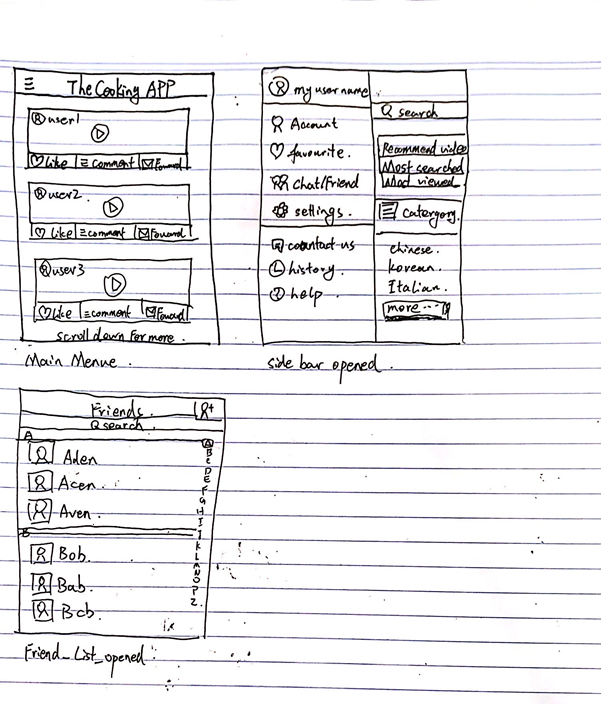 The Cooking APP
user1
Like comment Forward
user2.
Like comment Forward
user3
Like comment Forward
scroll down for more.
Main Menue.
my username
Account
favourite.
Chat/Friend
settings.
contact-us
history.
help.
search
Recommend video
Most searched
Most viewed
Catergory.
chinese.
korean.
Italian.
more...
side bar opened.
Friends.
search.
A
Aden
Acen.
Aven.
B
Bob.
Bab.
Bcb.
A
B
C
D
E
F
G
H
I
J
K
L
M
N
O
P
Z.
Friend_List_opened